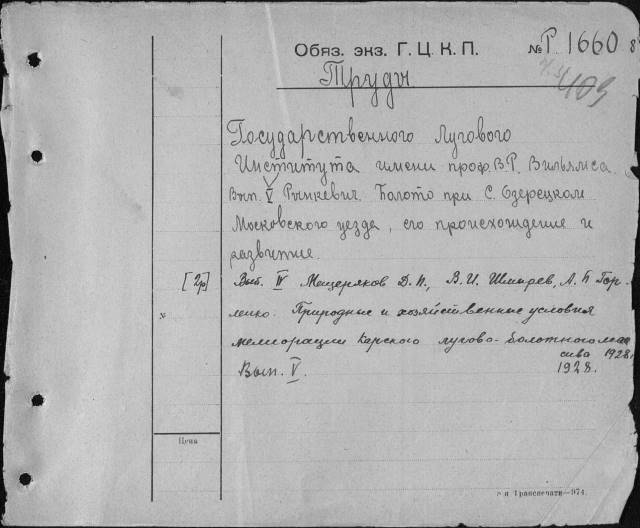 Обяз. экз. Г. Ц. К. П. № Р. 1660
Труды 409
Государственного Лугового
Института имени проф. В.Р. Вильямса.
Вып. V Рынкевич. Болото при С. Озерецком
Московского уезда, его происхождение и
развитие.
[2р] Вып. IV Мещеряков Д.П., В.И. Шмырев, А.П. Гор-
ленко. Природные и хозяйственные условия
мелиорации Керского лугово-болотного мас
сива 1928.
Вып. V. 1928.
Цена
Транспечати—974.